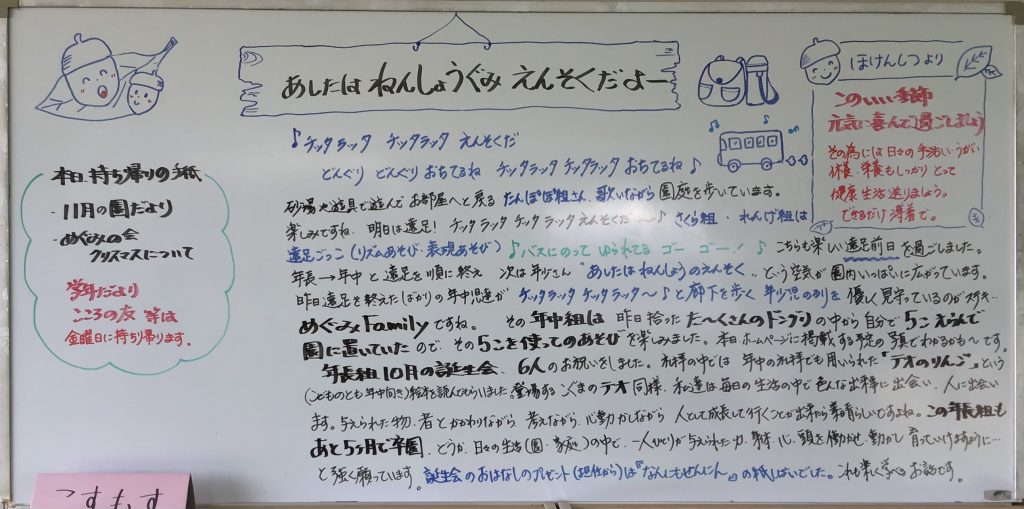 あしたは ねんしょうぐみ えんそくだよー
ほけんしつより
このいい季節
元気に喜んで過ごしましょう
その為には日々の手洗い・うがい
休養・栄養もしっかり とって
健康生活送りましょう。
できるだけ 薄着で。
本日 持ち帰りの手紙
・11月の園だより
・めぐみの会
クリスマスについて
学年だより
こころの友 等は
金曜日に持ち帰ります。
♪チッタラッタ チッタラッタ えんそくだ
どんぐり どんぐり おちてるね チッタラッタ チッタラッタ おちてるね♪
砂場や遊具で遊んで お部屋へと戻る たんぽぽ組さん、歌いながら 園庭を歩いています。
楽しみですね。明日は遠足! チッタラッタ チッタラッタ えんそくだ〜〜♪ さくら組・れんげ組は
遠足ごっこ(リズムあそび・表現あそび)♪バスにのって ゆられてる ゴー ゴー!♪ こちらも楽しい遠足前日を過ごしました。
年長→年中と遠足を順に終え 次は年少さん "あしたは ねんしょうのえんそく" という空気が 園内いっぱいに広がっています。
昨日遠足を終えたばかりの年中児達が チッタラッタ チッタラッタ〜♪と廊下を歩く 年少児のりを 優しく見守っているのがステキ…
めぐみFamilyですね。 その年中組は 昨日拾った た〜くさんのドングリの中から自分で5こえらんで
園に置いていたので その5こを使ってのあそびを楽しみました。本日ホームページに掲載する予定の写真でわかるかも〜です。
年長組10月の誕生会、6人のお祝いをしました。礼拝の中では 年中の礼拝でも用いられた「テオのりんご」という
(こどものとも年中向き)絵本を読んでもらいました。登場する こぐまのテオ同様、私達は毎日の生活の中で色んな出来事に出会い、人に出会い
ます。与えられた物・者とかかわりながら 考えながら 心動かしながら 人として成長して行くことが出来たら素晴らしいですね。この年長組も
あと5ヶ月で卒園、どうか、日々の生活(園・家庭)の中で、一人ひとりが与えられた力、身体・心・頭を働かせ、動かし 育っていけます様に…
と強く願っています。誕生会のおはなしのプレゼント(担任から)は『なんにもせんにん』の紙しばいでした。これも楽しく学べるお話です。
こすもす